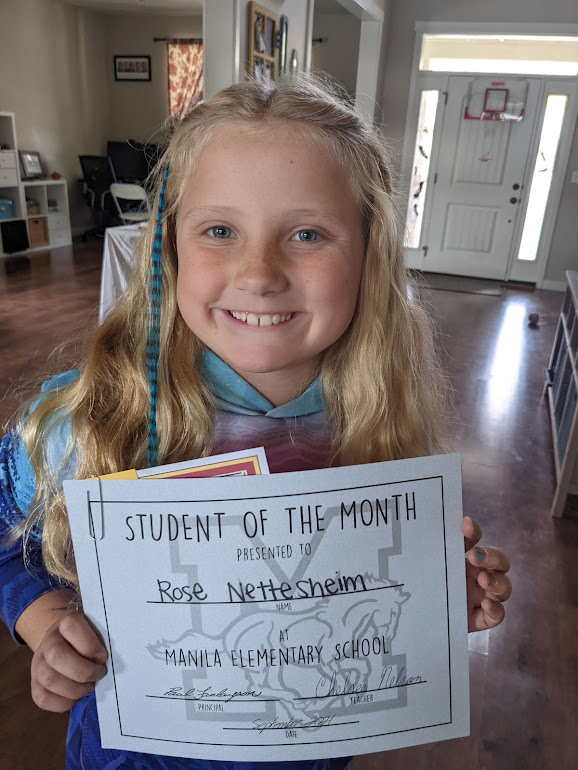 STUDENT OF THE MONTH
PRESENTED TO
Rose Nettesheim
NAME
AT
MANILA ELEMENTARY SCHOOL
Chelsea Nelson
PRINCIPAL
TEACHER
September 2021
DATE